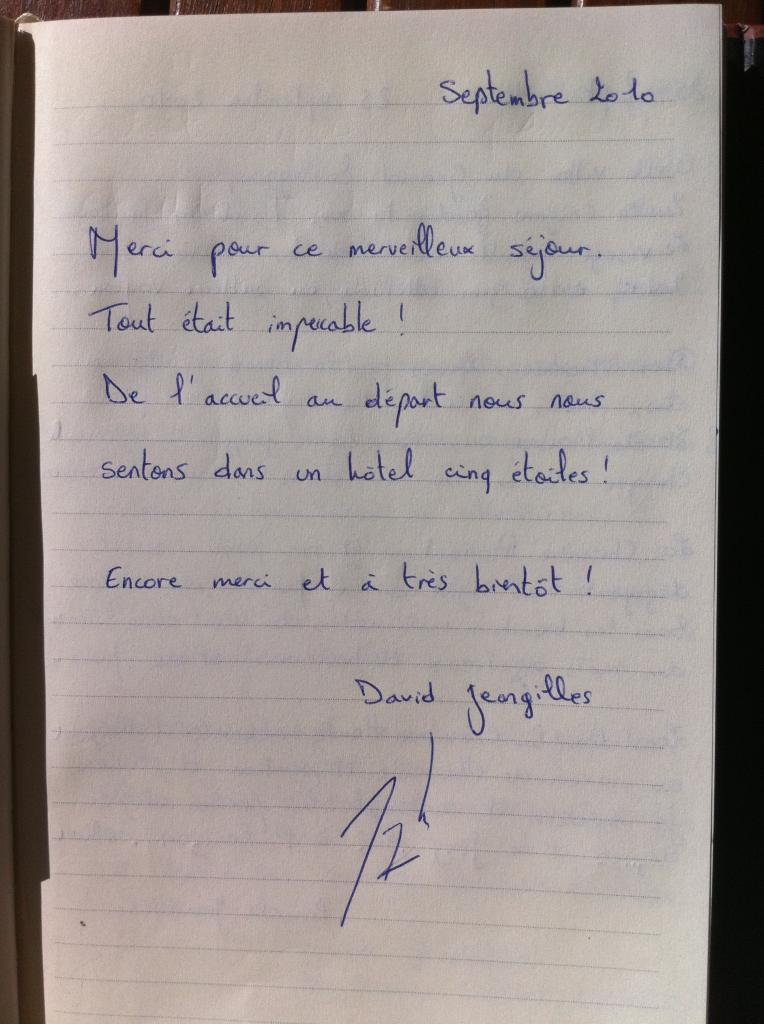 Septembre 2010
Merci pour ce merveilleux séjour.
Tout était impecable !
De l'accueil au départ nous nous
sentons dans un hôtel cinq étoiles !
Encore merci et à très bientôt !
David Jeangilles